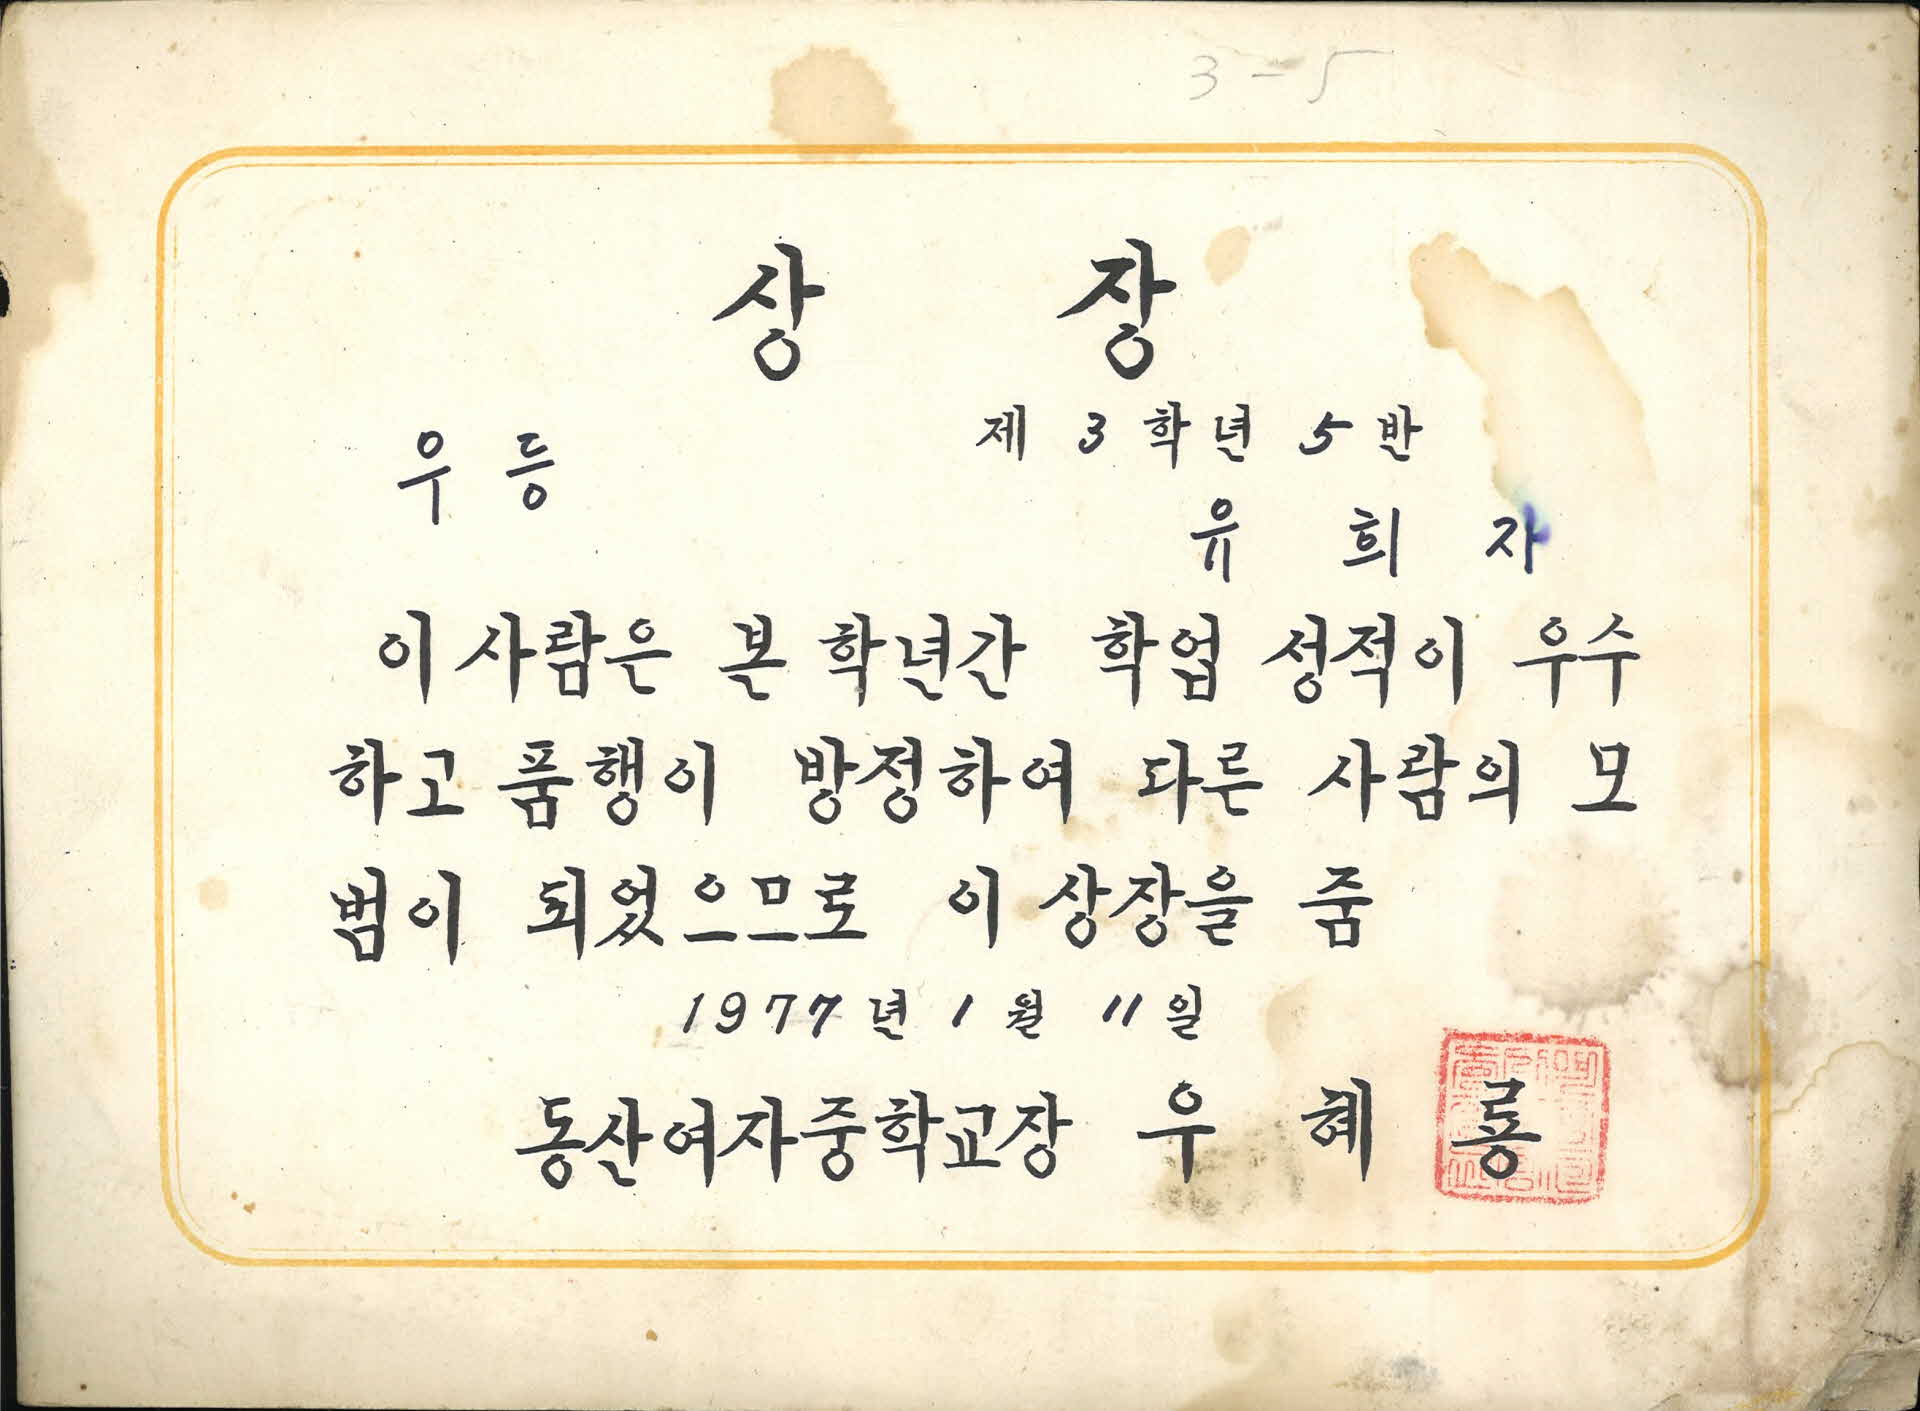 3-5
상 장
제 3 학년 5 반
우 등
유 희 자
이 사람은 본 학년간 학업 성적이 우수
하고 품행이 방정하여 다른 사람의 모
범이 되었으므로 이 상장을 줌
1977 년 1 월 11 일
동산여자중학교장 우 혜 룡